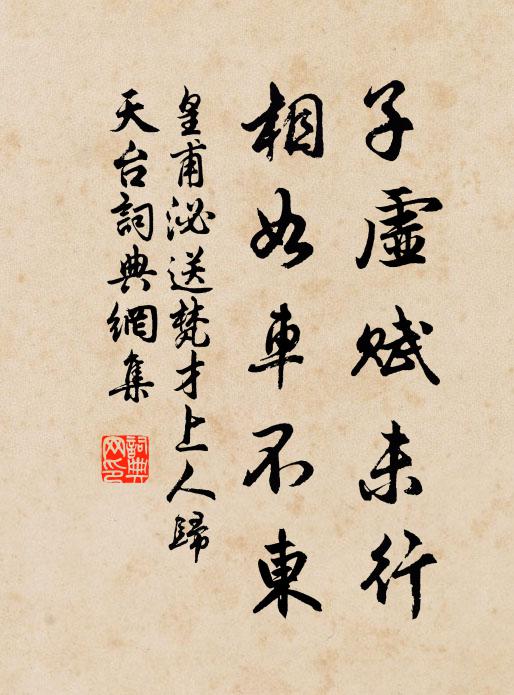 子虛賦未行
相如車不東
皇甫泌送梵才上人歸
天台詞典網集
詞典網印